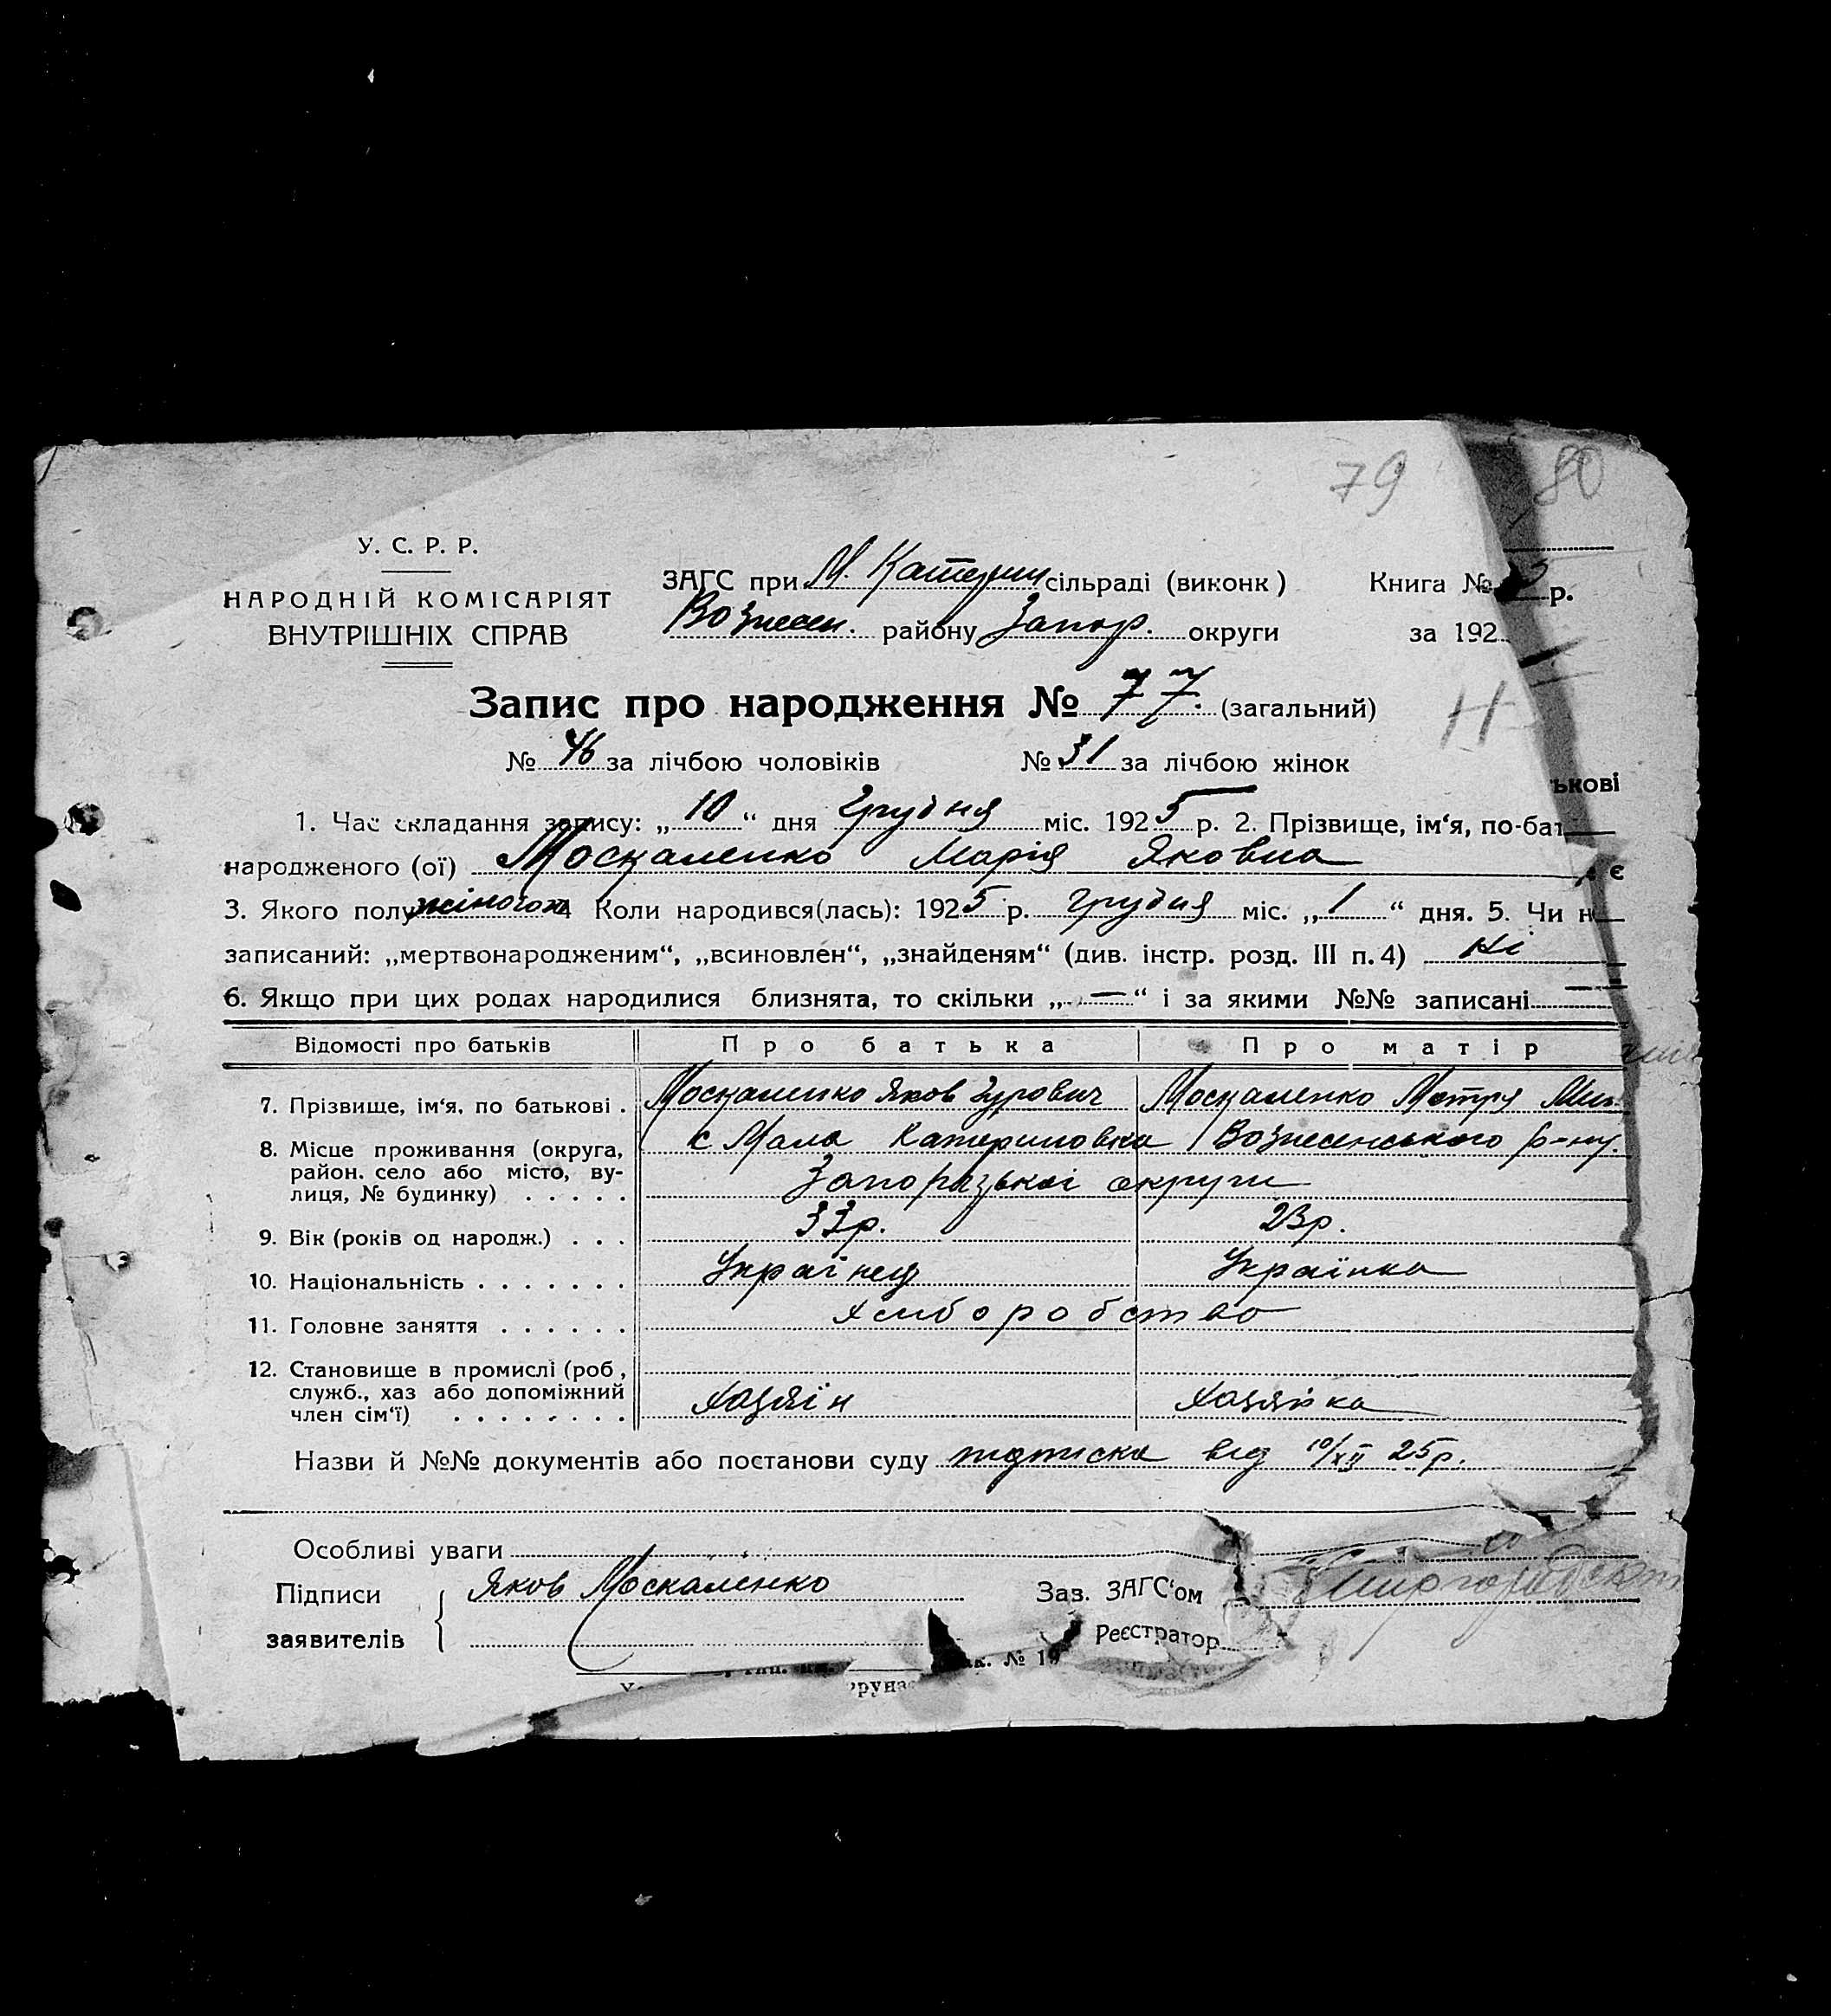 79
80
У. С. Р. Р.
НАРОДНІЙ КОМІСАРІЯТ
ВНУТРІШНІХ СПРАВ
ЗАГС при М. Катерин сільраді (виконк)
Вознесен. району Запор. округи
Книга №
р.
за 192
Запис про народження № 77. (загальний)
Н
№ 46 за лічбою чоловіків № 31 за лічбою жінок
ькові
1. Час складання запису: „10“ дня Грудня міс. 1925 р. 2. Прізвище, ім‘я, по-бат
народженого (ої) Москаленко Марія Яковна
є
3. Якого полу жіночого 4 Коли народився(лась): 1925 р. Грудня міс. „1“ дня. 5. Чи н
записаний: „мертвонародженим“, „всиновлен“, „знайденям“ (див. інстр. розд. III п. 4) Ні
6. Якщо при цих родах народилися близнята, то скільки „—“ і за якими №№ записані —
Відомості про батьків Про батька Про матір
7. Прізвище, ім‘я, по батькові . Москаленко Яков Гурович Москаленко Мотря Мих.
8. Місце проживання (округа, с Мала Катериновка Вознесенського р-ну.
район. село або місто, ву-
лиця, № будинку) . . . . . Запорізької округи
9. Вік (років од народж.) . . . 33р. 23р.
10. Національність . . . . . . . Українец Українка
11. Головне заняття . . . . . . Хлиборобство
12. Становище в промислі (роб,
служб., хаз або допоміжний
член сім‘ї) . . . . . . . . Хазяїн Хазяйка
Назви й №№ документів або постанови суду підписка від 10/XII 25р.
Особливі уваги
Підписи Яков Москаленко Зав. ЗАГС‘ом
заявителів Реєстратор
№ 19